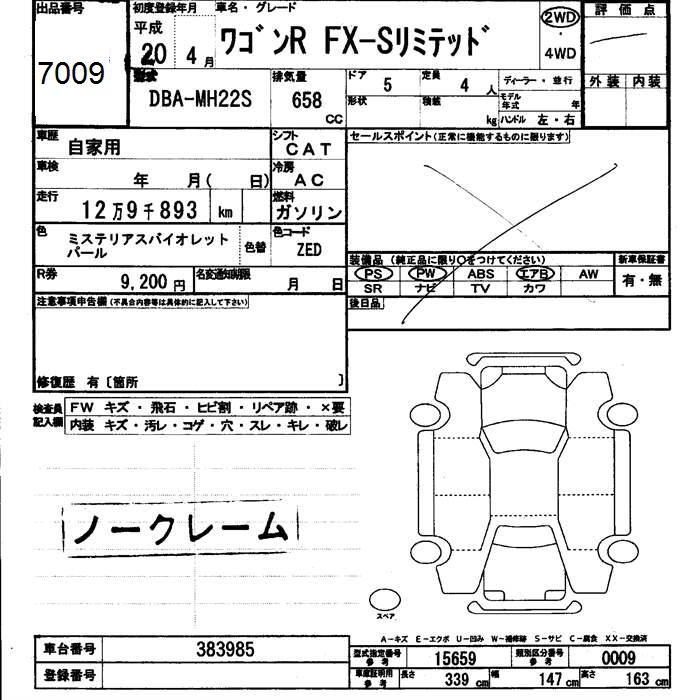 出品番号
7009
初度登録年月
平成
20 4月
車名・グレード
ワゴンR FX-Sリミテッド
2WD
・
4WD
評価点
外装 内装
型式
DBA-MH22S
排気量
658
CC
ドア 5
定員 4人
形状
積載 kg
ディーラー・並行
モデル年式 年
ハンドル 左・右
車歴 自家用
シフト CAT
車検 年 月( 日)
冷房 AC
走行 12万9千893 km
燃料 ガソリン
色 ミステリアスバイオレット
パール
色替
色コード ZED
R券 9,200円
名変通知期限 月 日
セールスポイント(正常に機能するものに限ります)
装備品(純正品に限り○をつけてください)
PS PW ABS エアB AW
SR ナビ TV カワ
新車保証書
有・無
後日品
注意事項申告欄(不具合内容等は具体的に記入して下さい)
修復歴 有〔箇所 〕
検査員
記入欄
FW キズ・飛石・ヒビ割・リペア跡・×要
内装 キズ・汚レ・コゲ・穴・スレ・キレ・破レ
ノークレーム
スペア
A-キズ E-エクボ U-凹み W-補修跡 S-サビ C-腐食 XX-交換済
車台番号 383985
登録番号
型式指定番号
参考
15659
類別区分番号
参考
0009
車庫証明用
参考
長さ 339cm
幅 147cm
高さ 163cm